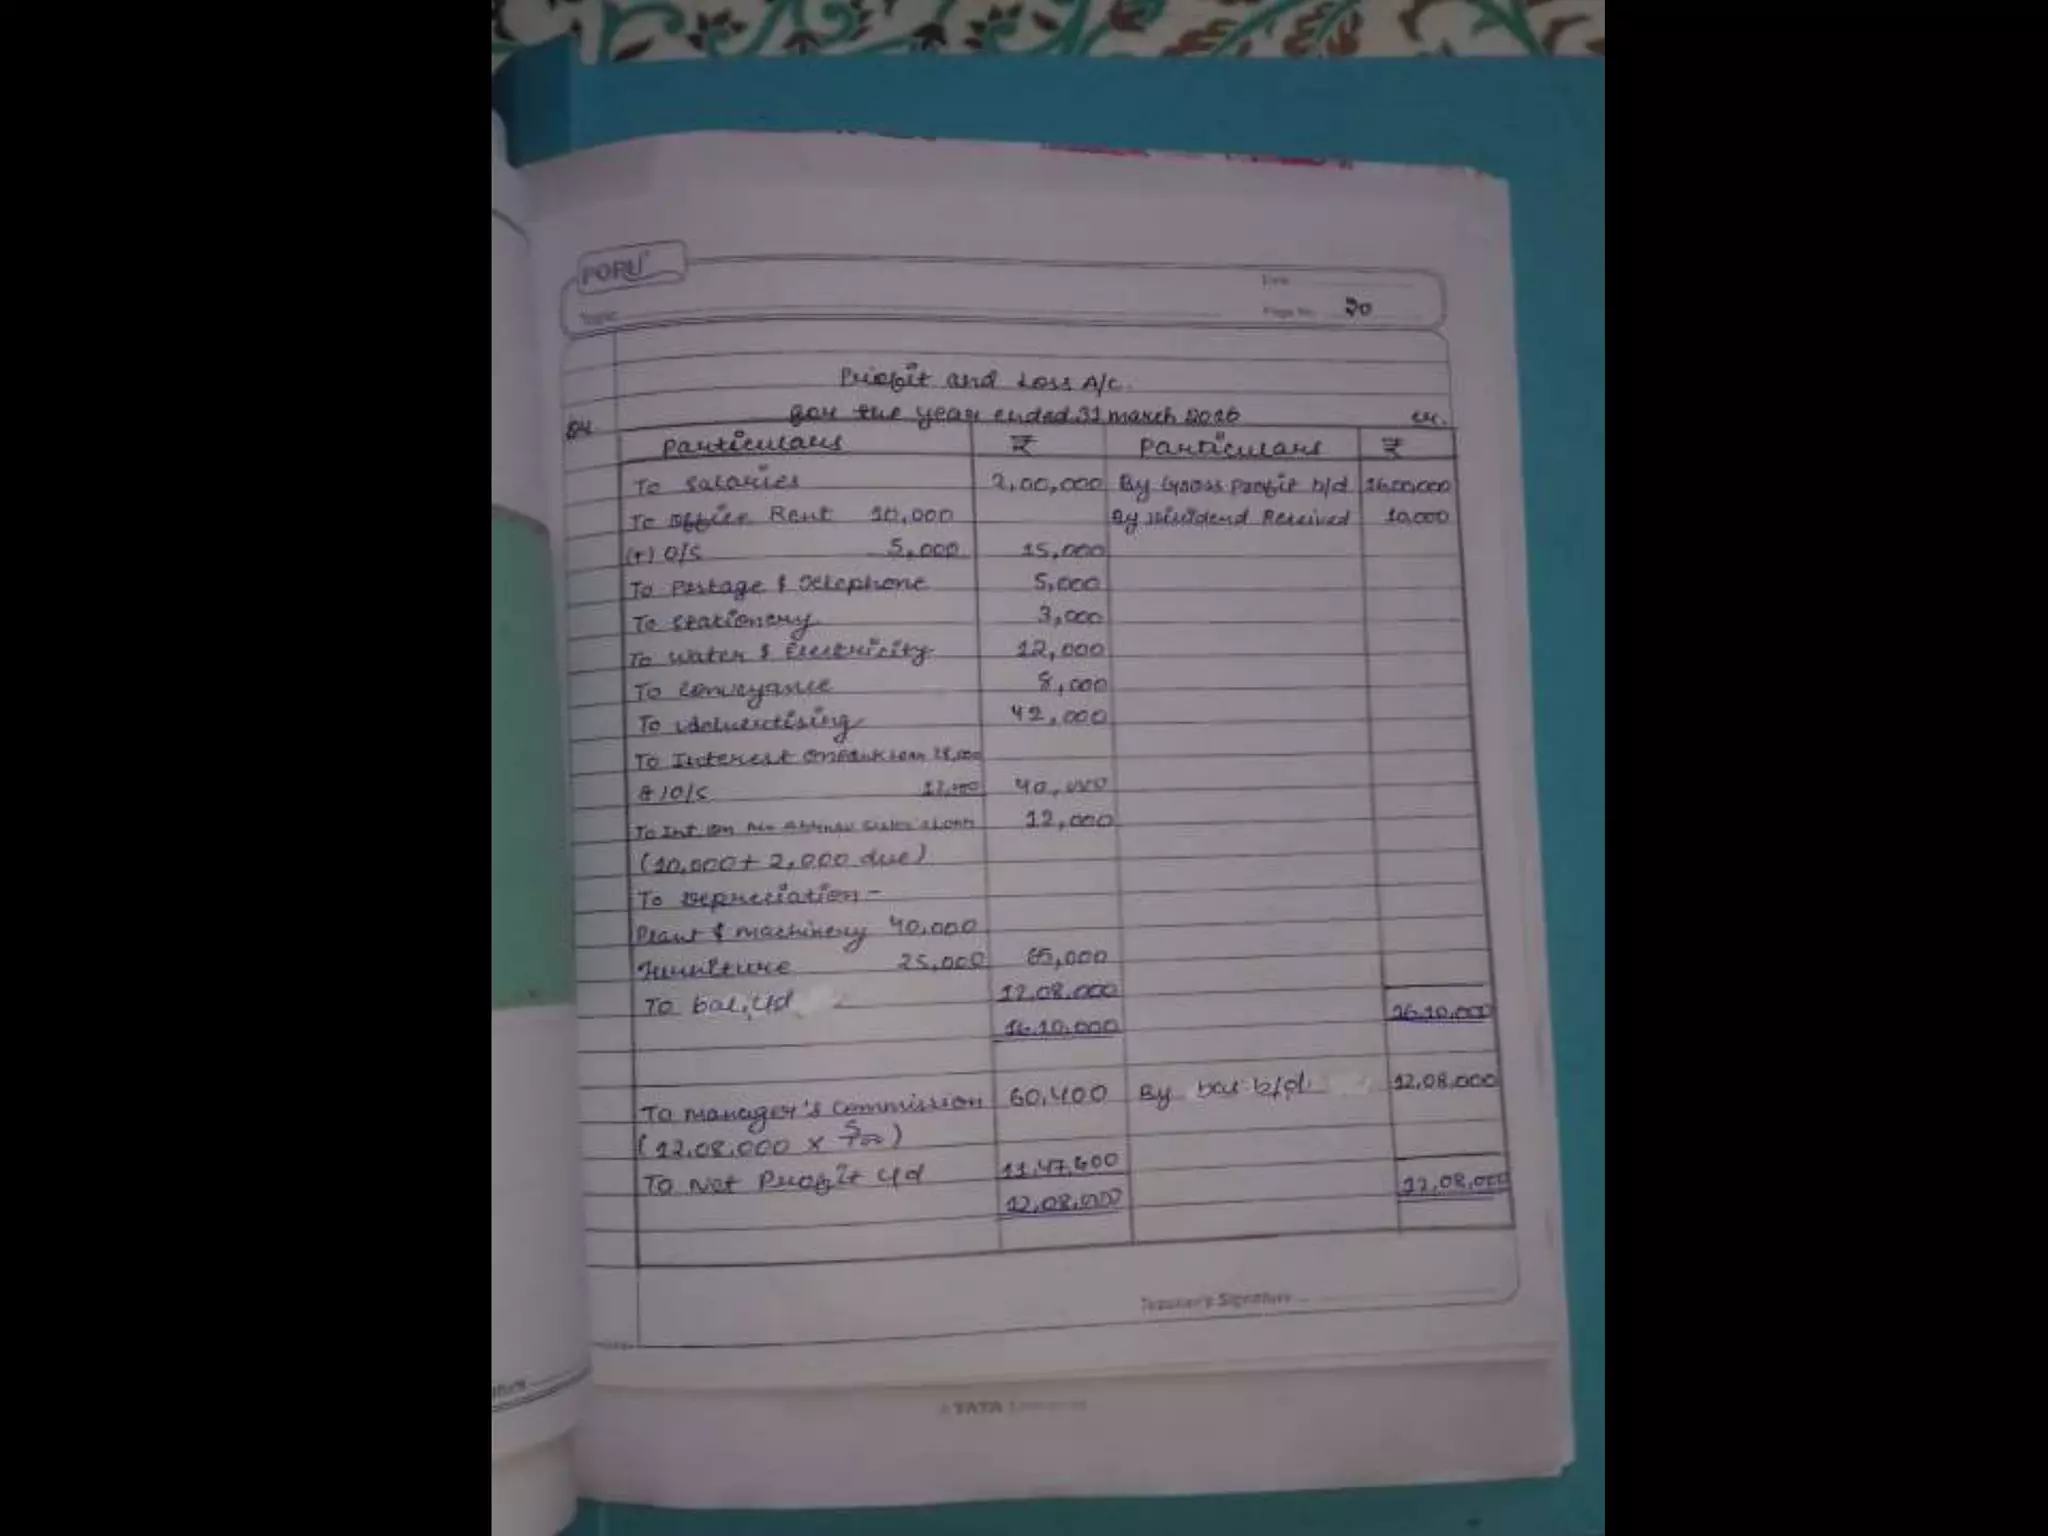 PORU
Page No. 20
Profit and Loss A/c.
for the year ended 31 march 2016
Dr. Cr.
Particulars ₹ Particulars ₹
To Salaries 2,00,000 By Gross Profit b/d 1600000
To Office Rent 10,000 By Dividend Received 10,000
(+) O/S 5,000 15,000
To Postage & Telephone 5,000
To Stationery 3,000
To Water & Electricity 12,000
To Conveyance 8,000
To Advertising 42,000
To Interest on Bank Loan 28,000
O/S 12,000 40,000
To Int on Loan 12,000
(10,000 + 2,000 due)
To Depreciation -
Plant & machinery 40,000
Furniture 25,000 65,000
To bal. c/d 12,08,000
16,10,000 16,10,000
To manager's commission 60,400 By bal b/d. 12,08,000
(12,08,000 x 5/100)
To Net Profit c/d 11,47,600
12,08,000 12,08,000
Teacher's Signature
A TATA